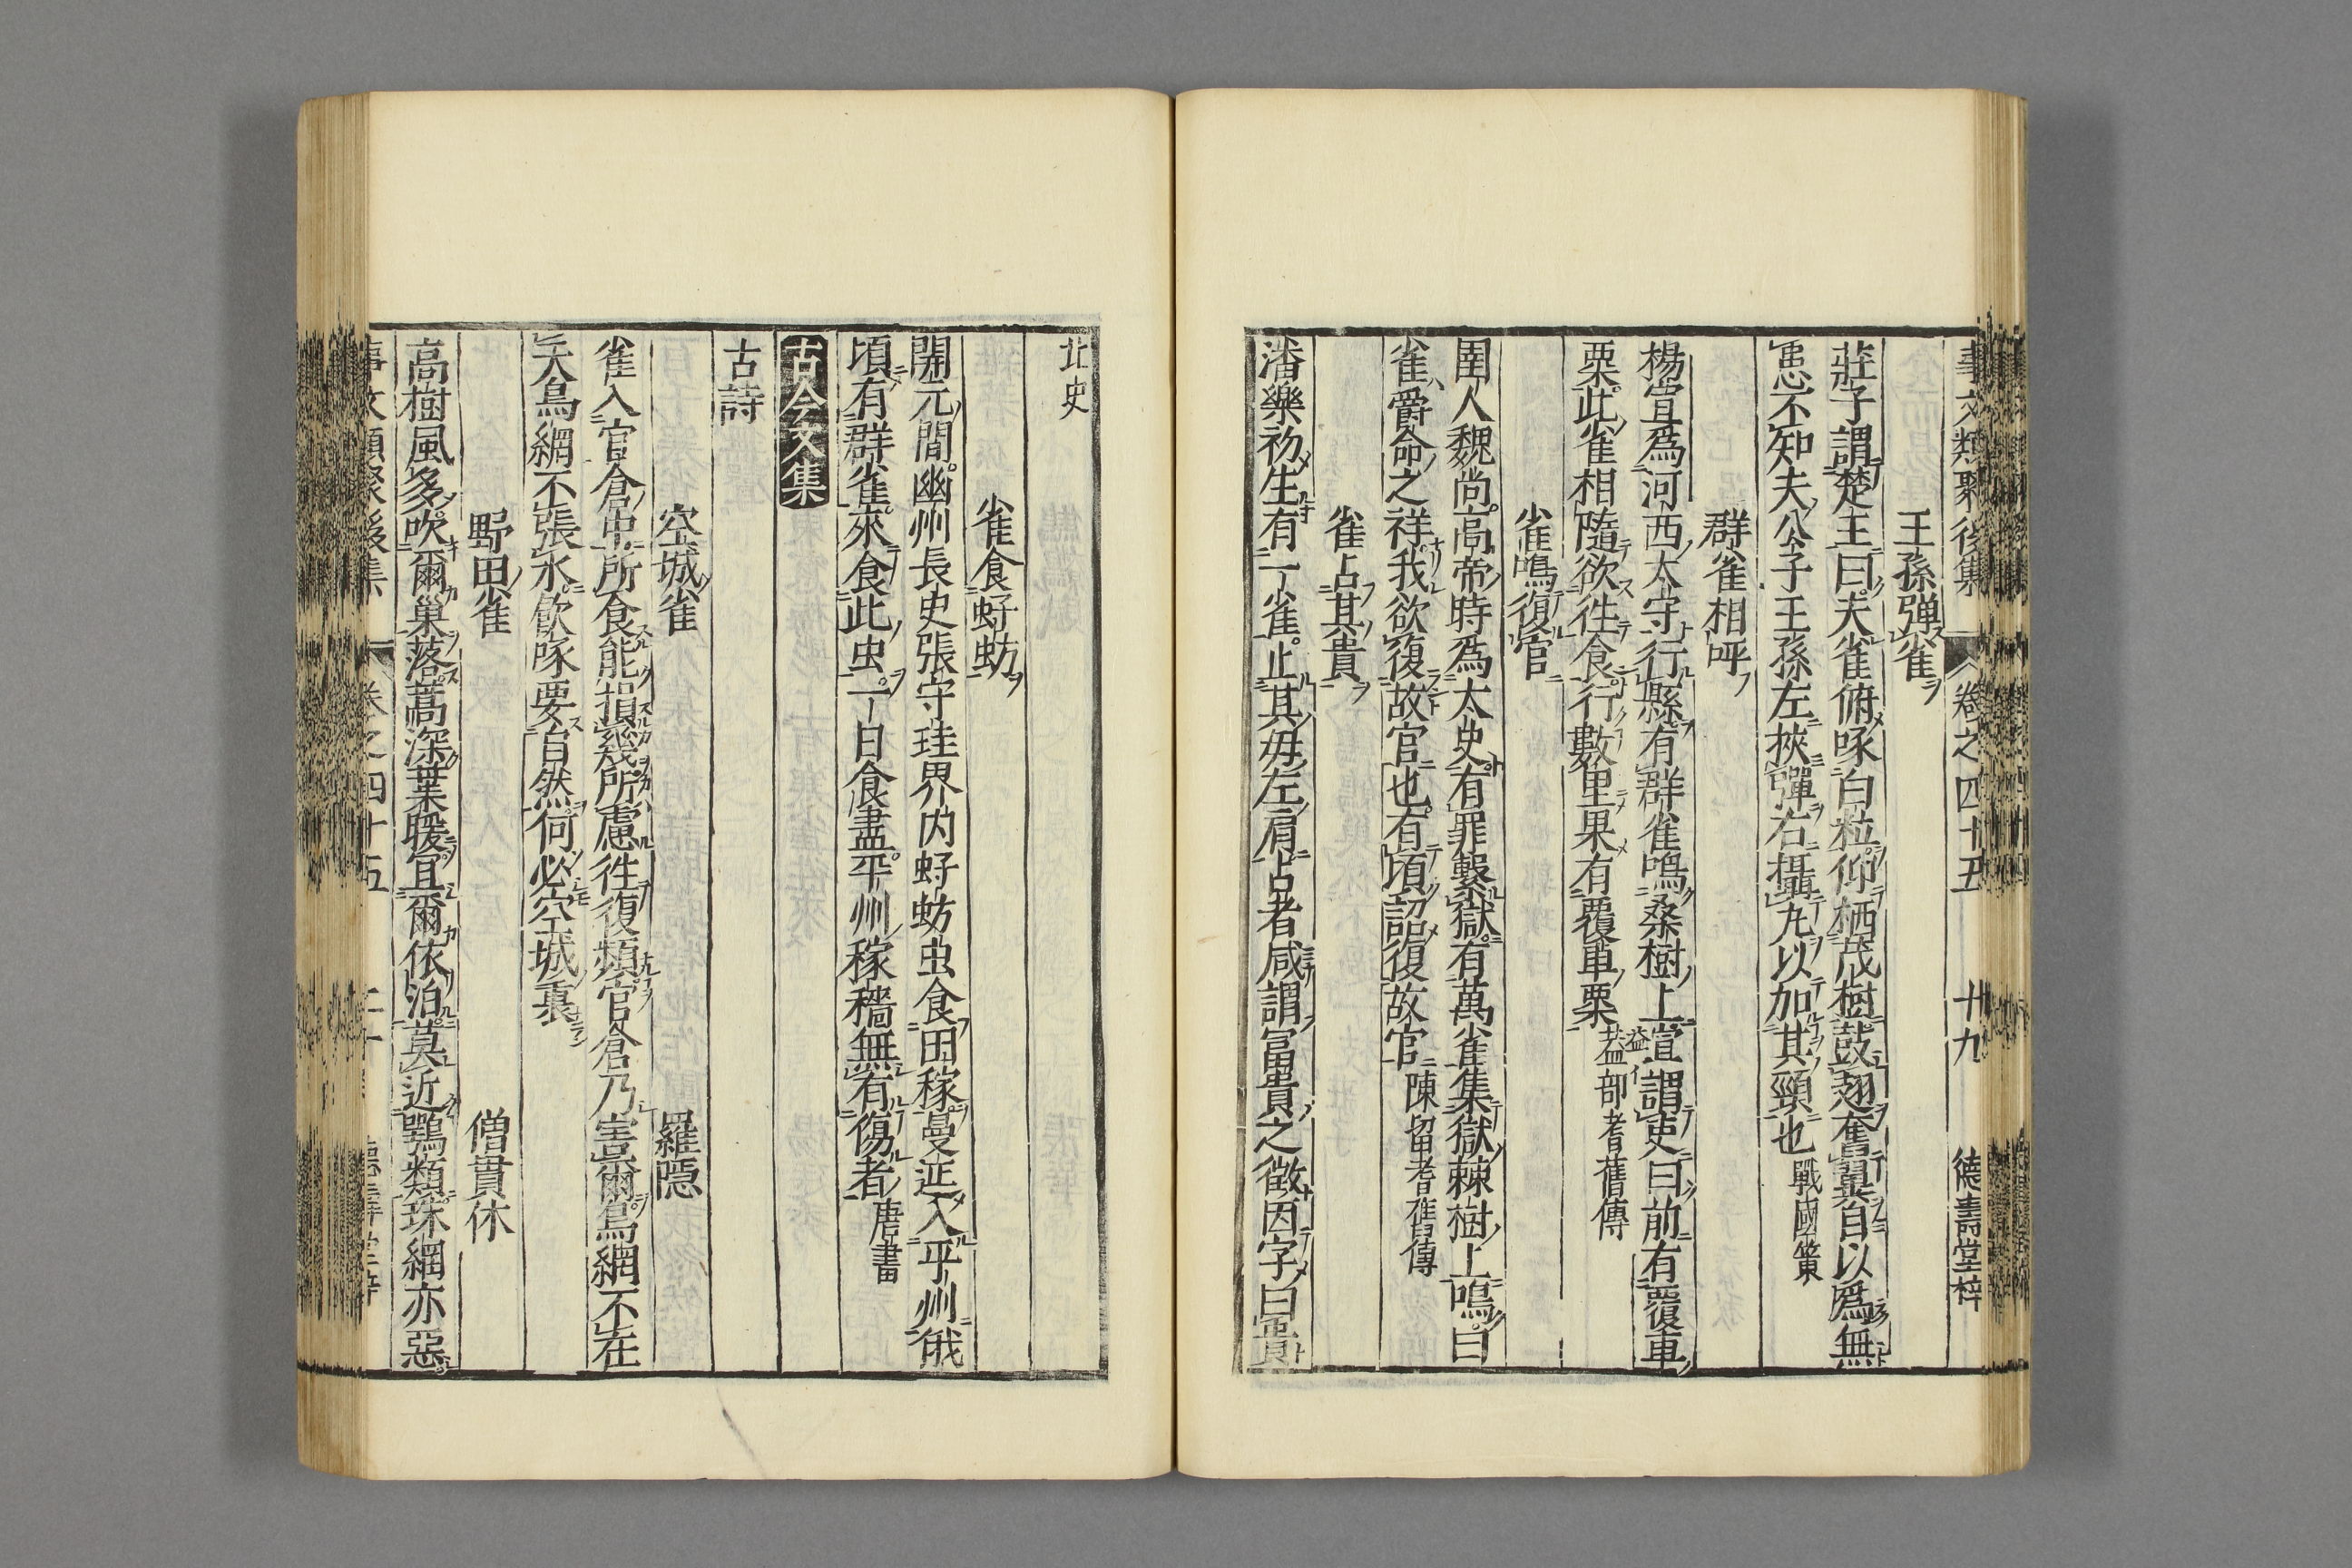 事文類聚後集 卷之四十五 十九 德壽堂梓
王孫彈雀
莊子謂楚王曰夫雀俯啄白粒仰栖茂樹鼓翅奮翼自以爲無
患不知夫公子王孫左挾彈右攝丸以加其頸也 戰國策
群雀相呼
楊宣爲河西太守行縣有群雀鳴桑樹上宣謂吏曰前有覆車
粟此雀相隨欲徃食行數里果有覆車粟 益部耆舊傳
益
雀鳴復官
圉人魏尚高帝時爲太史有罪繫獄有萬雀集獄棘樹上鳴曰
雀爵命之祥我欲復故官也有頃詔復故官 陳留耆舊傳
雀占其貴
潘樂初生有一雀止其母左肩占者咸謂富貴之徵因字曰貴
北史
雀食蚜蚄
開元間幽州長史張守珪界内蚜蚄虫食田稼蔓延入平州俄
頃有群雀來食此虫一日食盡平州稼穡無有傷者 唐書
古今文集
古詩
空城雀 羅隱
雀入官倉中所食能損幾所慮徃復頻官倉乃害爾鳥網不在
天鳥網不張水飲啄要自然何必空城裏
野田雀 僧貫休
高樹風多吹爾巢落蒿深葉暖宜爾依泊莫近鶚類珠網亦惡
事文類聚後集 卷之四十五